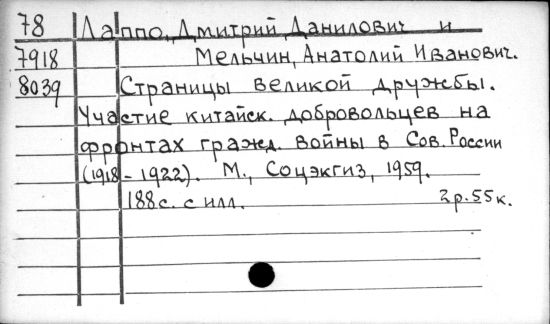 78 Лаппо, Дмитрий Данилович и
7918 Мельчин, Анатолий Иванович.
8039 Страницы великой дружбы.
Участие китайск. добровольцев на
фронтах гражд. войны в Сов. России
(1918-1922). М., Соцэкгиз, 1959.
188 с. с илл. 2р.55к.